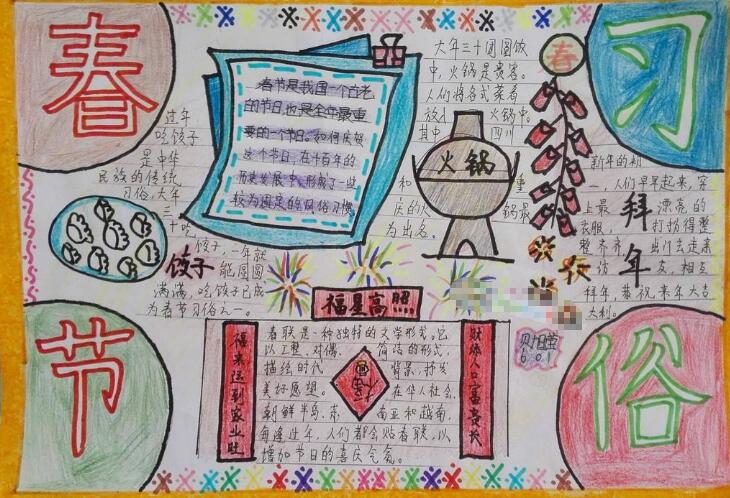 春
习
节
俗
春节是我国一个古老
的节日,也是全年最重
要的一个节日。如何庆贺
这个节日,在千百年的
历史发展中,形成了一些
较为固定的风俗习惯
过年
吃饺子
是中华
民族的传统
习俗。大年
三
十吃
饺子,一年就
饺子
能团圆
满满,吃饺子已成
为春节习俗之一。
大年三十团圆饭
中,火锅是贵客。
人们将各式菜肴
放入 火锅中。
其中 四川
和 重
庆的火 锅最
为出名。
火锅
春
新年的初
一,人们早早起来,穿
上最 漂亮的
衣服, 打扮得整
整齐齐, 出门去走亲
访 友,相互
拜年,恭祝来年大吉
大利。
拜
年
福星高照
福来运到家业旺
财添人口富贵长
福
春联是一种独特的文学形式。它
以工整、对偶、简洁的形式,
描绘时代 背景,抒发
美好愿望。 在华人社会、
朝鲜半岛、东 南亚和越南,
每逢过年,人们都会贴春联,以
增加节日的喜庆气氛。
6.01